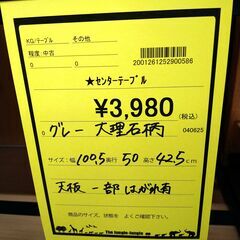 KG/テーブル その他
程度: 中古
0 0 2001261252900586
★センターテーブル
¥3,980 (税込)
グレー 大理石柄 040625
サイズ: 幅 100.5 奥行 50 高さ 42.5 cm
天板 一部 はがれ有
商品のサイズ、状態を よくご確認下さい。
The Jungle-Jungle